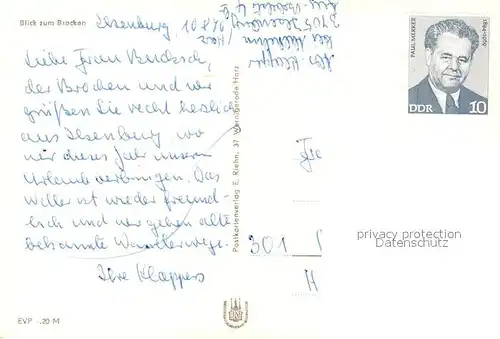 Blick zum Brocken
Ilsenburg, 10.8.76
Liebe Frau
der Brocken und wir
grüßen Sie recht herzlich
aus Ilsenburg wo
wir dieses Jahr unseren
Urlaub verbringen. Das
Wetter ist wieder freund-
lich und wir gehen alte
bekannte Wanderwege.
Ihre Klappers
EVP -.20 M
Postkartenverlag E. Riehn, 37 Wernigerode Harz
3705 Ilsenburg/Harz
PAUL MERKER
1894-1969
DDR 10
301
privacy protection
Datenschutz